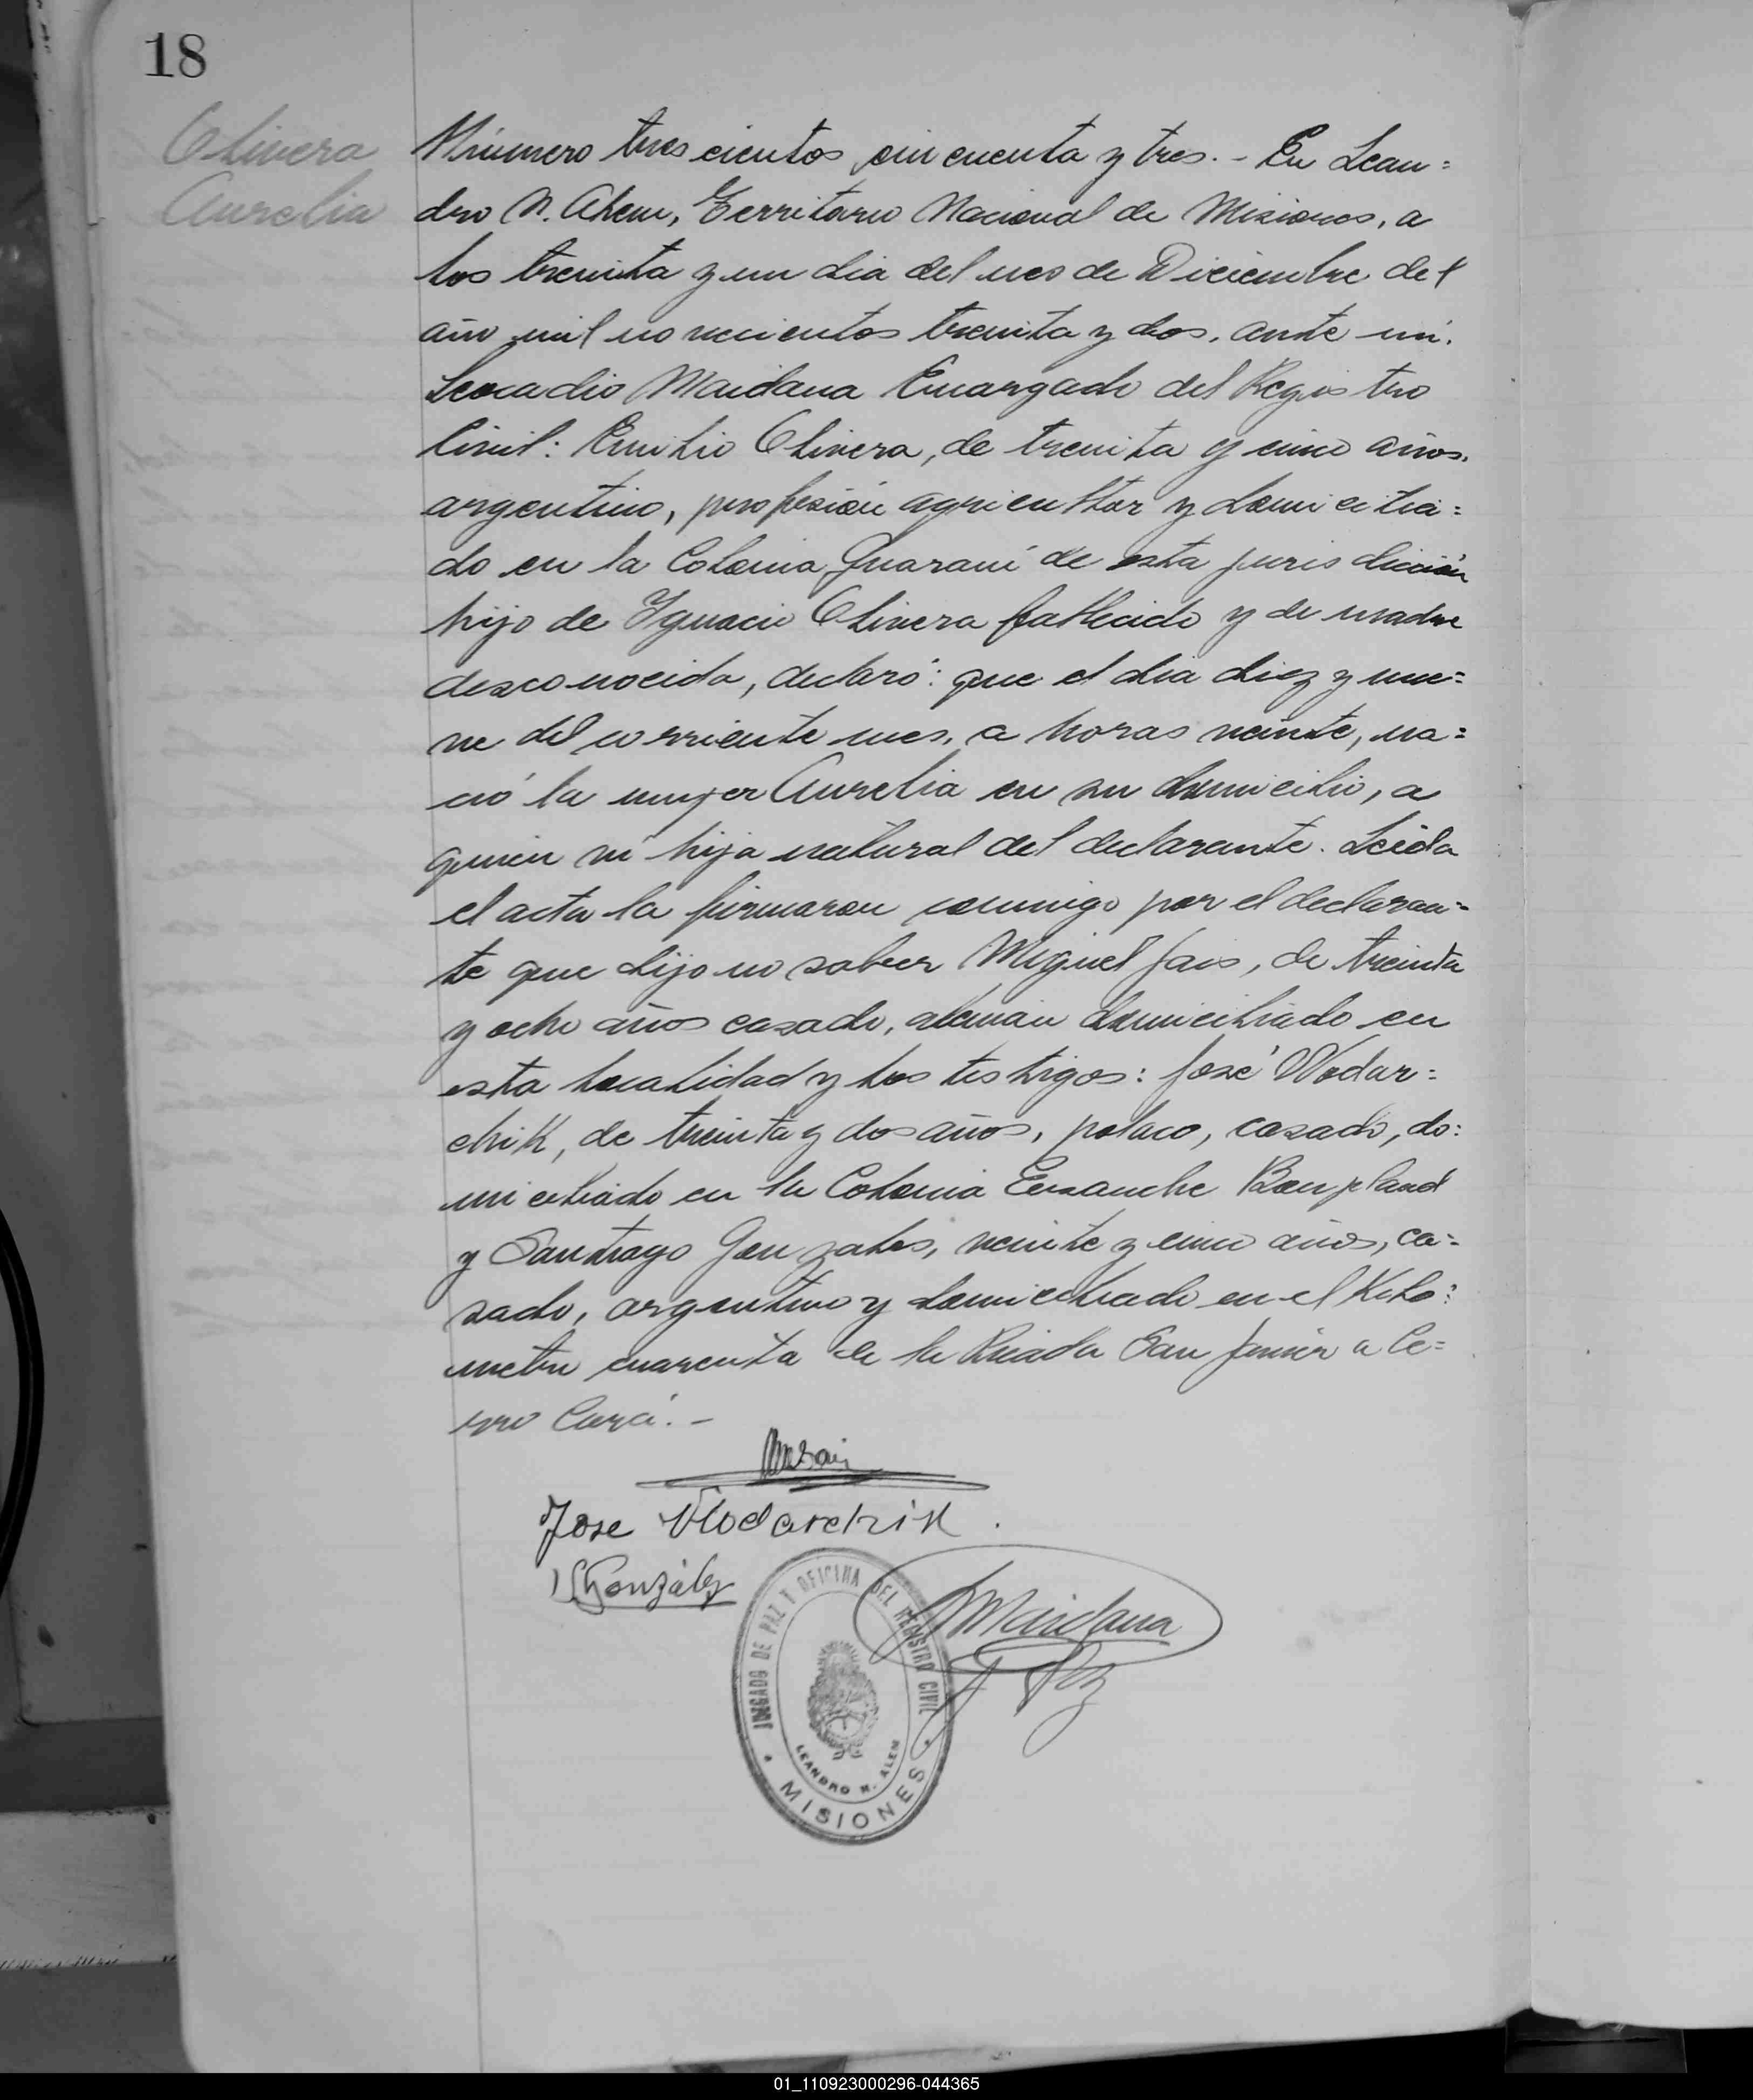 18
Olivera
Aurelia
Número trescientos cincuenta y tres. - En Lean=
dro N. Alem, Territorio Nacional de Misiones, a
los treinta y un dia del mes de Diciembre del
año mil novecientos treinta y dos, ante mi.
Leocadio Maidana Encargado del Registro
Civil: Emilio Olivera, de treinta y cinco años.
argentino, profesión agricultor y domicilia=
do en la Colonia Guaraní de esta jurisdicción
hijo de Ygnacio Olivera fallecido y de madre
desconocida, declaró: que el dia diez y nue=
ve del corriente mes, a horas veinte, na=
ció la mujer Aurelia en su domicilio, a
quien vi hija natural del declarante. Leida
el acta la firmaron conmigo por el declaran=
te que dijo no saber Miguel Jais, de treinta
y ocho años casado, alemán domiciliado en
esta localidad y los testigos: José Wodar=
chik, de treinta y dos años, polaco, casado, do=
miciliado en la Colonia Ensanche Bonpland
y Santiago Gonzales, veinte y cinco años, ca=
sado, argentino y domiciliado en el Kiló=
metro cuarenta de la Picada San Javier a Ce=
rro Corá. -
Jose Wodarchik.
S González
Maidana
JUZGADO DE PAZ Y OFICINA DEL REGISTRO CIVIL
LEANDRO N. ALEM
MISIONES
01_110923000296-044365